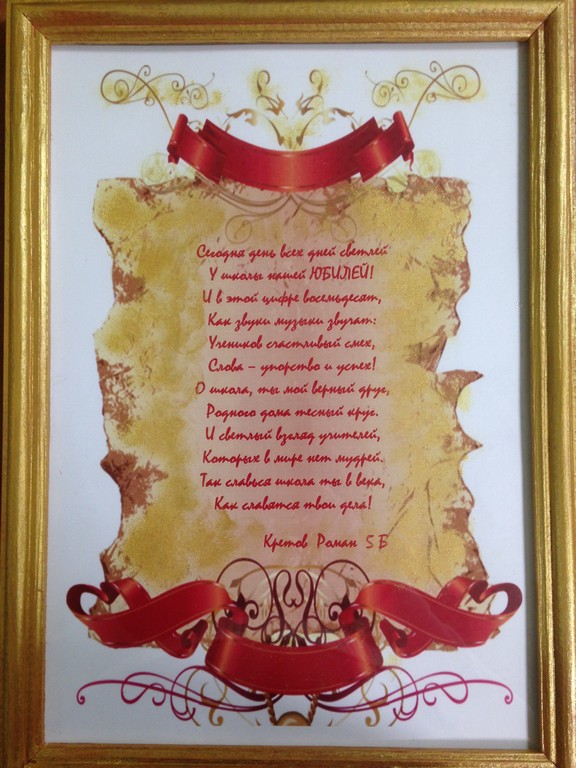 Сегодня день всех дней светлей
У школы нашей ЮБИЛЕЙ!
И в этой цифре восемьдесят,
Как звуки музыки звучат:
Учеников счастливый смех,
Слова – упорство и успех!
О школа, ты мой верный друг,
Родного дома тесный круг.
И светлый взгляд учителей,
Которых в мире нет мудрей.
Так славься школа ты в века,
Как славятся твои дела!
Кретов Роман 5 Б